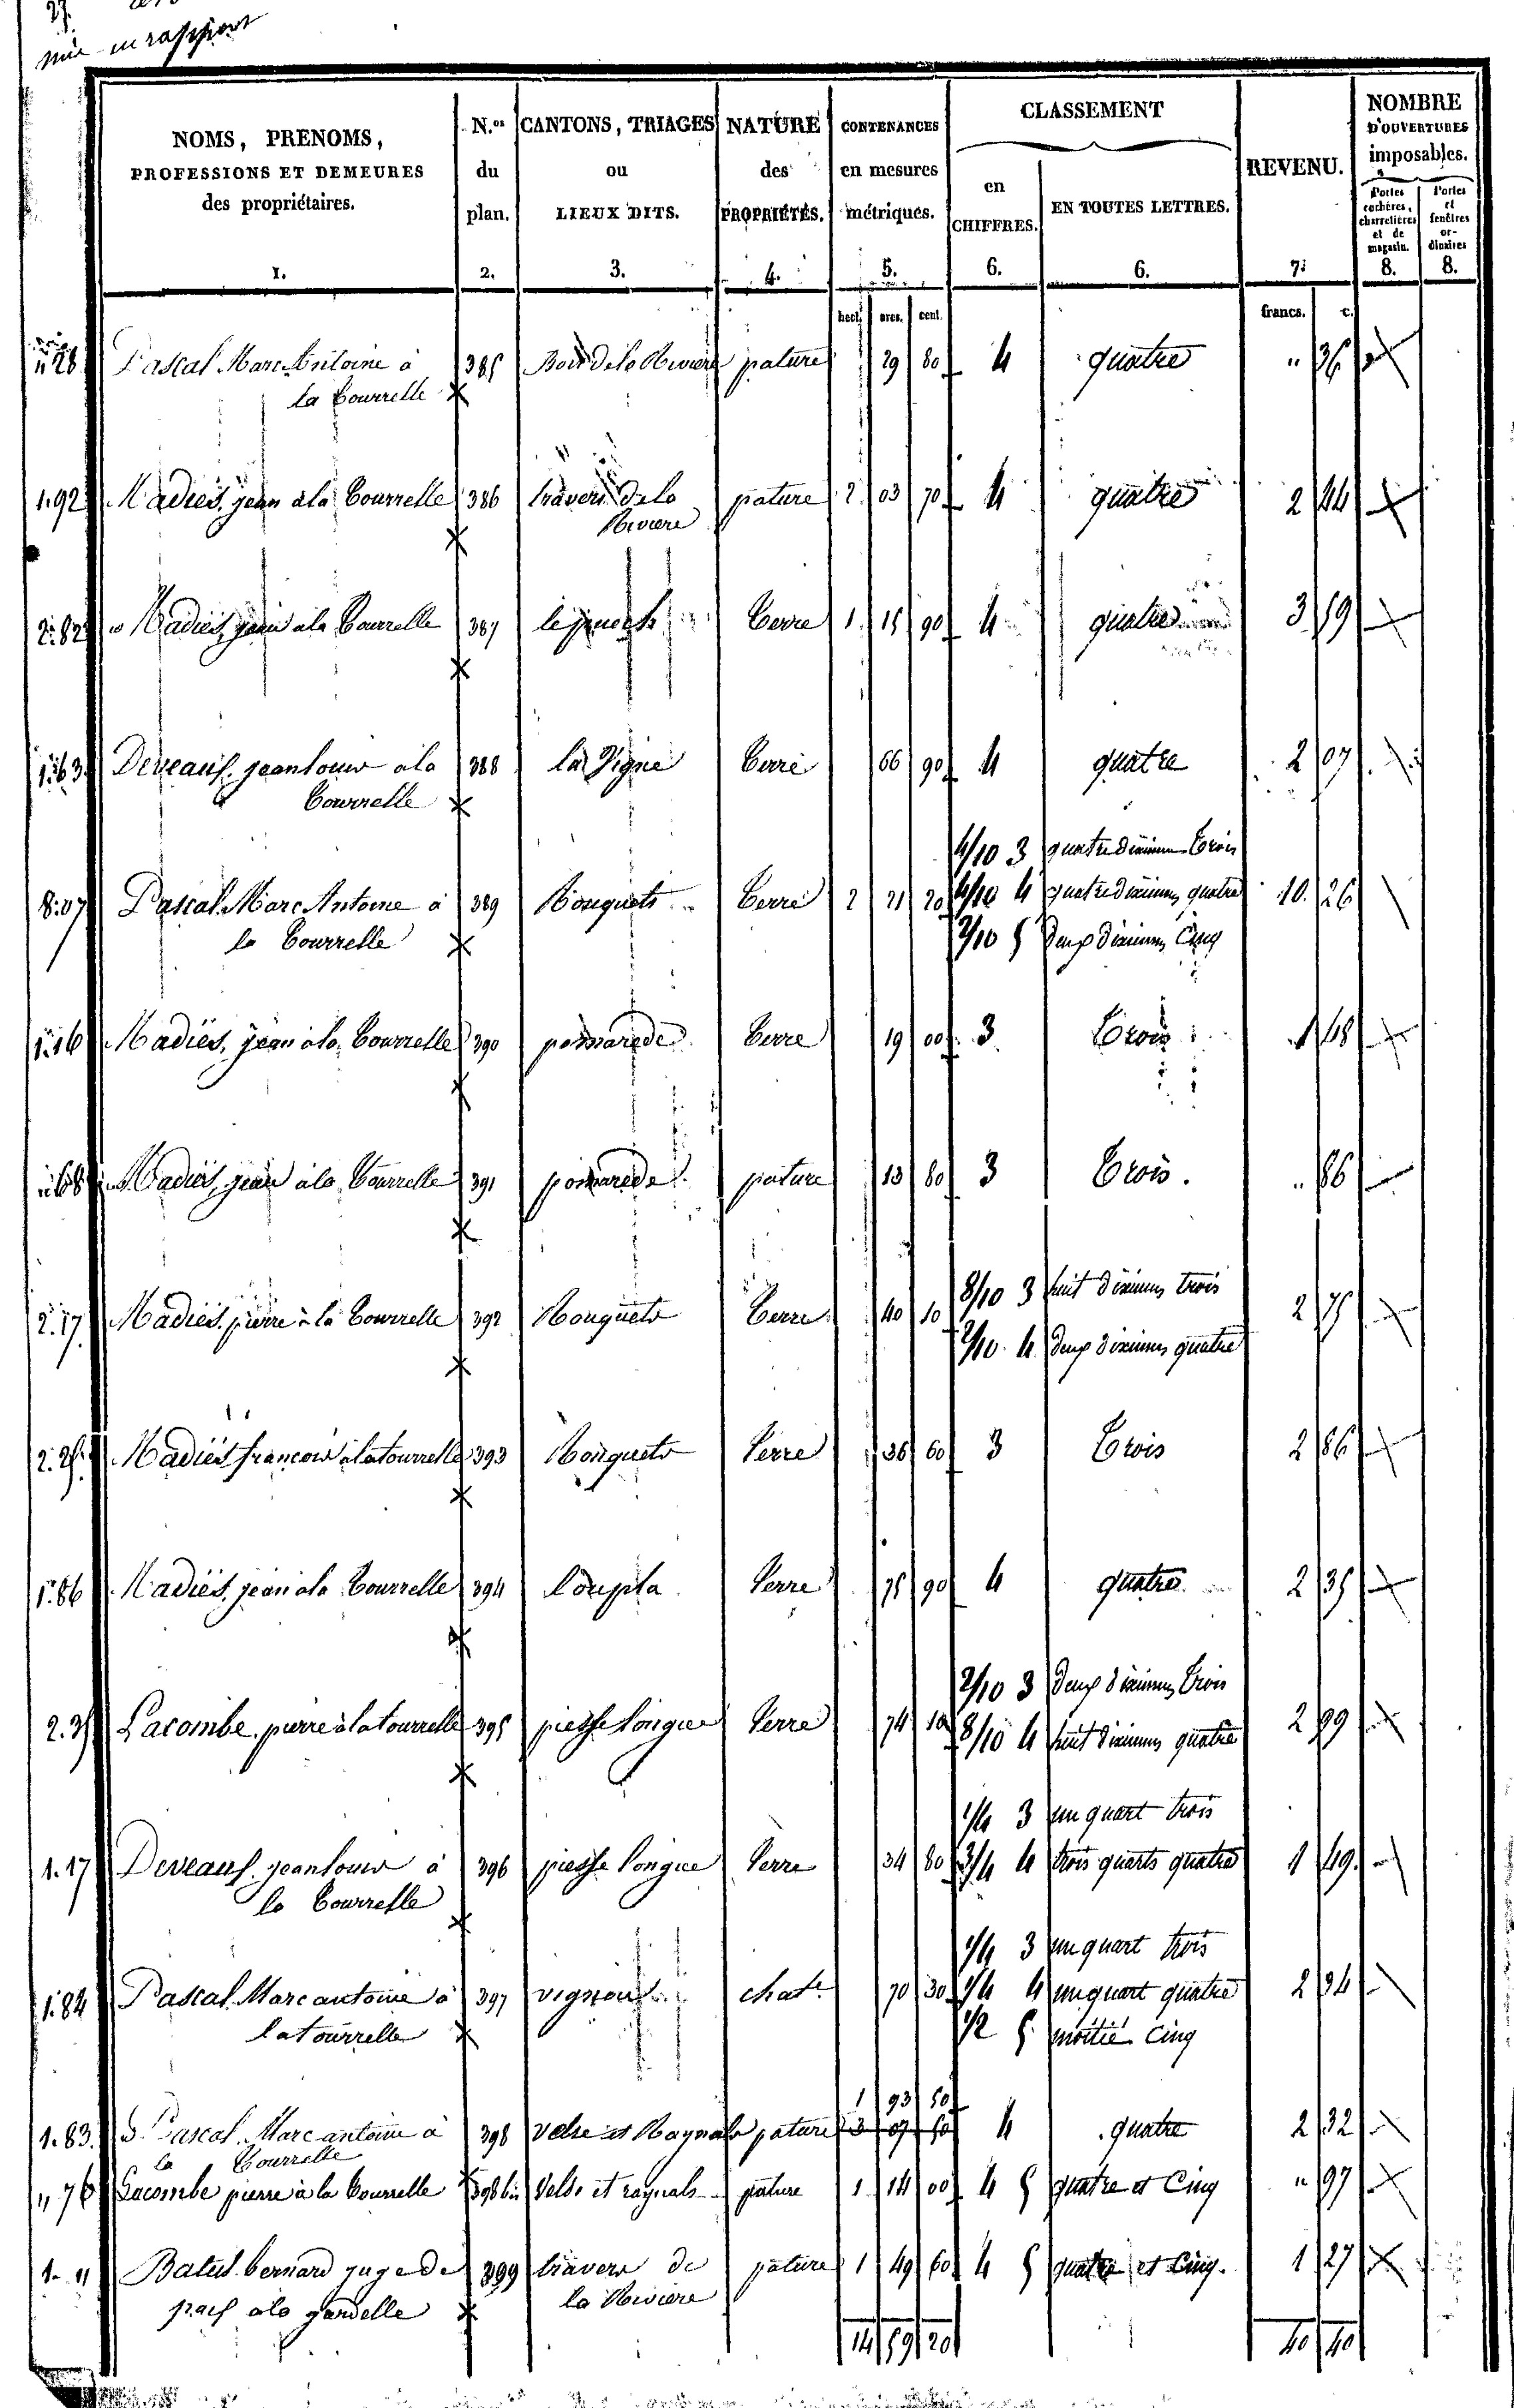 mis en rapport
NOMS, PRENOMS,
PROFESSIONS ET DEMEURES
des propriétaires.
1.
N.os
du
plan.
2.
CANTONS, TRIAGES
ou
LIEUX DITS.
3.
NATURE
des
PROPRIÉTÉS.
4.
CONTENANCES
en mesures
métriques.
5.
CLASSEMENT
en
CHIFFRES.
6.
EN TOUTES LETTRES.
6.
REVENU.
7.
NOMBRE
D'OUVERTURES
imposables.
Portes
cochères,
charretières
et de
magasin.
8.
Portes
et
fenêtres
or-
dinaires
8.
hect. ares. cent.
francs. c.
" 28 Pascal Marc Antoine à 385 Bois de la Riviere pature 29 80 4 quatre " 36
la Tourrelle
1.92 Madiés, jean à la Tourrelle 386 travers de la pature 2 03 70 4 quatre 2 44
Riviere
2.82 Madiés, jean à la Tourrelle 387 Terre 1 15 90 4 quatre 3 59
1.63 Deveaux, jean louis à la 388 la Vigne Terre 66 90 4 quatre 2 07
Tourrelle
4/10 3 quatre dixiemes Trois
8.07 Pascal Marc Antoine à 389 Rouquets Terre 2 21 20 4/10 4 quatre dixiemes quatre 10 26
la Tourrelle 2/10 5 deux dixiemes Cinq
1.16 Madiés, jean à la Tourrelle 390 pomarede Terre 19 00 3 Trois 1 48
" 68 Madiés, jean à la Tourrelle 391 pomarede pature 13 80 3 Trois. " 86
8/10 3 huit dixiemes trois
2.17 Madiés, pierre à la Tourrelle 392 Rouquets Terre 40 10 2 75
2/10 4 deux dixiemes quatre
2.25 Madiés francois à la tourrelle 393 Rouquets Terre 36 60 3 Trois 2 86
1.86 Madiés, jean à la Tourrelle 394 Loupta Terre 75 90 4 quatre 2 35
2/10 3 deux dixiemes trois
2.35 Lacombe, pierre à la tourrelle 395 piesse longue Terre 74 10 8/10 4 huit dixiemes quatre 2 99
1/4 3 un quart trois
1.17 Deveaux, jean louis à 396 piesse longue Terre 34 80 3/4 4 trois quarts quatre 1 49
la Tourrelle
1/4 3 un quart trois
1.84 Pascal Marc antoine à 397 vignou chat. 70 30 1/4 4 un quart quatre 2 34
la tourrelle 1/2 5 moitié Cinq
1 93 50
1.83 Pascal Marc antoine à 398 Velse et Raynals pature 3 07 50 4 quatre 2 32
la Tourrelle
" 76 Lacombe pierre à la Tourrelle 398 bis Velse et raynals pature 1 14 00 4 5 quatre et Cinq " 97
1. " Batut bernard juge de 399 travers de pature 1 49 60 4 5 quatre et Cinq. 1 27
paix à la gardelle la Riviere
14 59 20 40 40